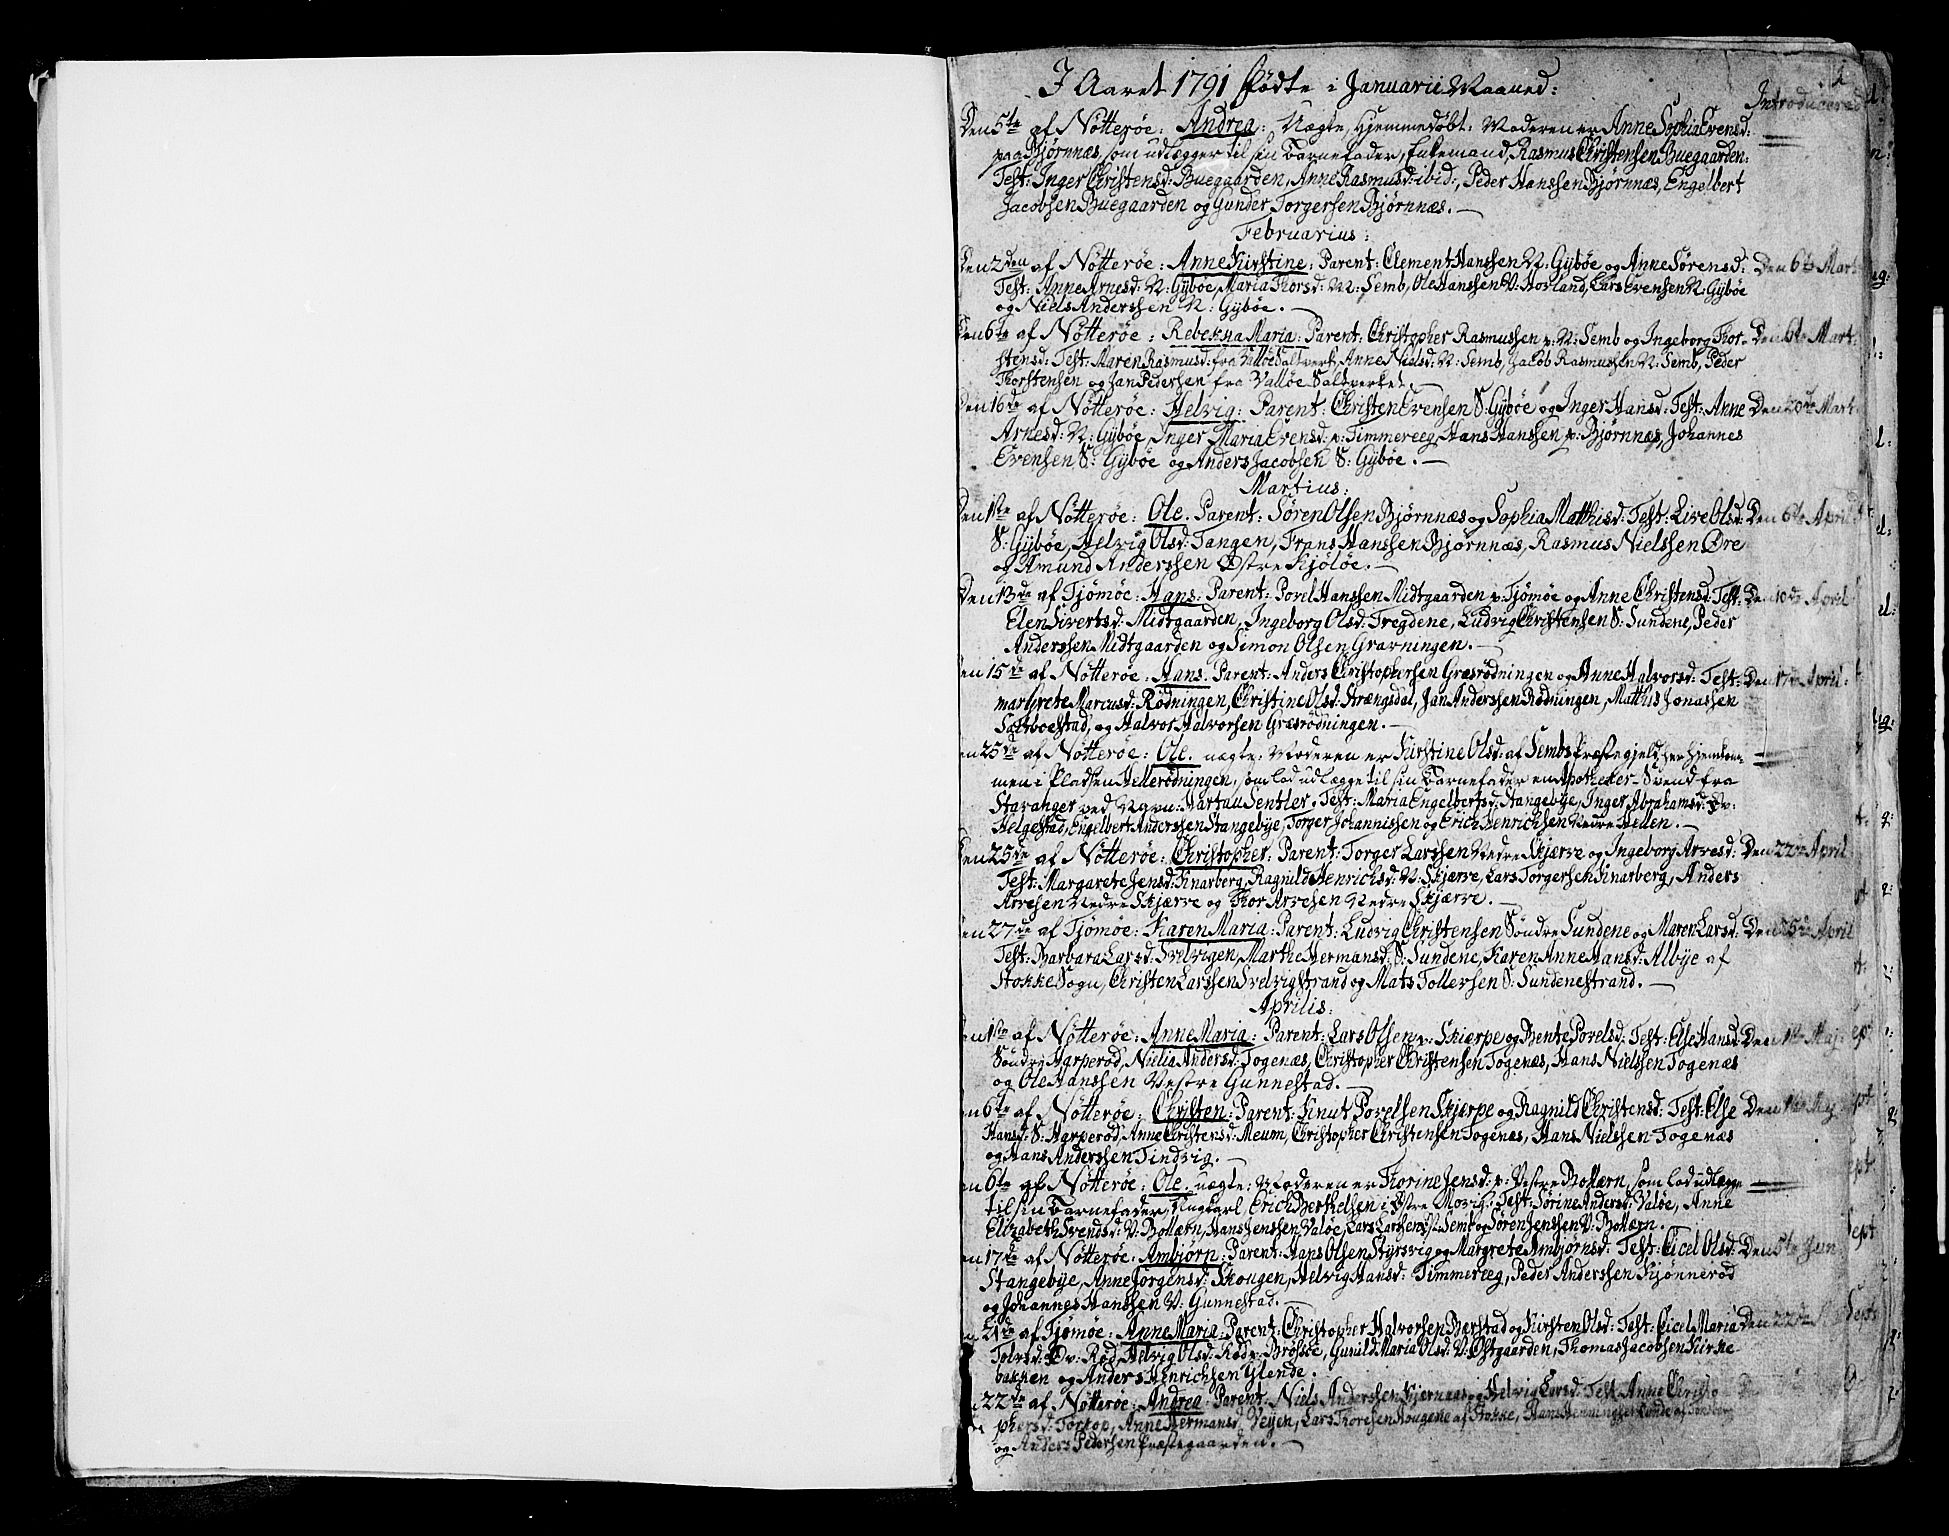 I Aaret 1791 fødte i Januarii Maaned:
Introducered
Den 5te af Nøtterøe: Andrea: Uægte, Hjemmedøbt: Moderen er Anne Sophia Evensd:
paa Bjørnnæs, som udlægger til sin Barnefader, Enkemand, Rasmus Christensen Buegaarden:
Test: Inger Christensd: Buegaarden, Anne Rasmusd: ibid:, Peder Hanssen Bjørnnæs, Engelbert
Jacobsen Buegaarden og Gunder Torgersen Bjørnnæs.
Februarius:
Den 2den af Nøtterøe: Anne Kirstine: Parent: Clement Hanssen N: Gybøe og Anne Sørensd: Den 6te Mart:
Test: Anne Arnesd: N: Gybøe, Maria Thorsd: N: Semb, Ole Hanssen V: Horland, Lars Evensen N: Gybøe
og Niels Anderssen N: Gybøe.
Den 6te af Nøtterøe: Rebekka Maria: Parent: Christopher Rasmussen p: N: Semb og Ingeborg Thor- Den 6te Mart:
stensd: Test: Maren Rasmusd: fra Valløe Saltverk, Anne Nielsd: N: Semb, Jacob Rasmussen N: Semb, Peder
Thorstensen og Jan Pedersen fra Valløe Saltverket.
Den 16de af Nøtterøe: Helvig: Parent: Christen Evensen S: Gybøe og Inger Hansd: Test: Anne Den 20de Mart:
Arnesd: N: Gybøe, Inger Maria Evensd: p: Timmereeg, Hans Hanssen p: Bjørnnæs, Johannes
Evensen S: Gybøe og Anders Jacobsen S: Gybøe.
Martius:
Den 1ste af Nøtterøe: Ole. Parent: Søren Olsen Bjørnnæs og Sophia Matthisd: Test: Live Olsd: Den 6te April
S: Gybøe, Helvig Olsd: Tangen, Frans Hanssen Bjørnnæs, Rasmus Nielssen Øre
og Amund Anderssen Østre Kjøløe.
Den 13de af Tjømøe: Hans: Parent: Povel Hanssen Midtgaarden p: Tjømøe og Anne Christensd: Test: Den 10de April
Elen Sivertsd: Midtgaarden, Ingeborg Olsd: Tregdene, Ludvig Christensen S: Sundene, Peder
Anderssen Midtgaarden og Simon Olsen Gravningen.
en 15de af Nøtterøe: Hans: Parent: Anders Christophersen Græsrødningen og Anne Halvorsd: Test: Den 17de April
Margrete Marcusd: Rødningen, Christine Olsd: Strængsdal, Jan Anderssen Rødningen, Matthis Jonassen
Saltboestad, og Halvor Halvorsen Græsrødningen.
en 25de af Nøtterøe: Ole. uægte: Moderen er Kirstine Olsd: af Sembs Præstegjeld, her hjemkom-
men i Pladsen Hellerødningen, som lod udlægge til sin Barnefader en Apotheker-Svend fra
Stavanger ved Navn: Hartau Sentler. Test: Maria Engelbertsd: Stangebye, Inger Abrahamsd: Øv:
Helgestad, Engelbert Anderssen Stangebye, Torger Johannissen og Erich Henrichsen Nedre Hellen.
en 25de af Nøtterøe: Christopher: Parent: Torger Larssen Nedre Skjærve og Ingeborg Arvesd: Den 22de April
Test: Margarete Jensd: Knarberg, Ragnild Henrichsd: N: Skjærve, Lars Torgersen Knarberg, Anders
Arvesen Nedre Skjærve og Thor Arvesen Nedre Skjærve.
en 27de af Tjømøe: Karen Maria: Parent: Ludvig Christensen Søndre Sundene og Maren Larsd: Den 25de April
Test: Barbara Larsd: Svelvigen, Marthe Hermansd: S: Sundene, Karen Anne Hansd: Albye af
Stokke Sogn, Christen Larssen Svelvigstrand og Mats Tollersen S: Sundenestrand.
Aprilis:
en 1ste af Nøtterøe: Anne Maria: Parent: Lars Olsen p: Skjerpe og Bente Povelsd: Test: Else Hansd: Den 1ste Maj:
Søndre Harperød, Nielia Andersd: Togenæs, Christopher Christensen Togenæs, Hans Nielssen Togenæs
og Ole Hanssen Vestre Gunnestad.
en 6te af Nøtterøe: Christen: Parent: Knut Povelsen Skjerpe og Ragnild Christensd: Test: Else Den 1ste Maj:
Hansd: S: Harperød, Anne Christensd: Meum, Christopher Christensen Togenæs, Hans Nielssen Togenæs
og Hans Anderssen Tindvig.
en 6te af Nøtterøe: Ole. uægte: Moderen er Thorine Jensd: p: Vestre Bollærn, som lod udlægge
til sin Barnefader, Ungkarl Erich Berthelsen i Østre Movig: Test: Sørine Andersd: Valøe, Anne
Elizabeth Svendsd: V: Bollærn, Hans Jenssen Valøe, Lars Larssen Øst: Semb og Søren Jenssen V: Bollærn.
en 17de af Nøtterøe: Ambjørn: Parent: Hans Olsen Styrsvig og Margrete Ambjørnsd: Test: Cicel Olsd: Den 5te Jun
Stangebye, Anne Jørgensd: Skougen, Helvig Hansd: Timmereeg, Peder Anderssen Kjønnerød
og Johannes Hanssen V: Gunnestad.
21de af Tjømøe: Anne Maria: Parent: Christopher Halvorsen Bærstad og Kirsten Olsd: Test: Cicel Maria Den 22de
Tolvsd: Øv: Rød, Helvig Olsd: Rød p: Brøtsøe, Gunild Maria Olsd: V: Østgaarden, Thomas Jacobsen Kirke-
bakken og Anders Henrichsen Glende.
22de af Nøtterøe: Andrea: Parent: Niels Anderssen Kjernaas og Helvig Larsd: Test: Anne Christo-
phersd: Torkop, Anne Hermansd: Veyen, Lars Thoresen Hougene af Stokke, Hans Henningsen
og Anders Pedersen Præstegaarden.